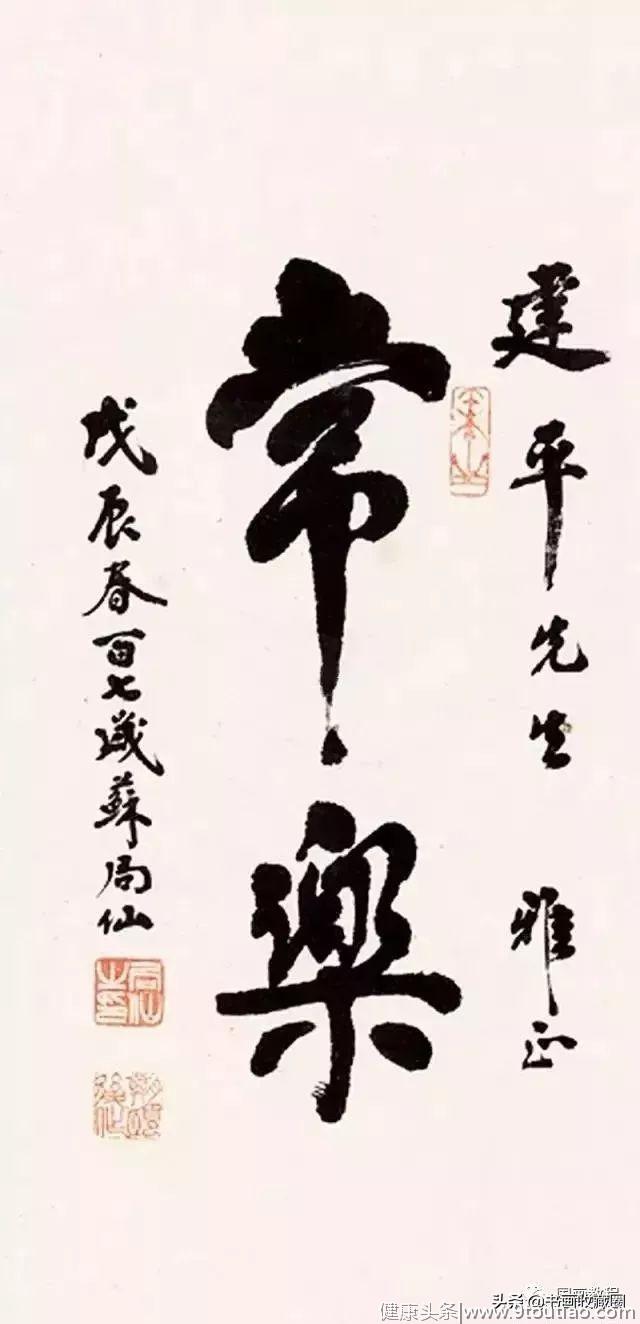 建平先生 雅正
常樂
戊辰春百七歲蘇局仙
局仙之印
头条@书画收藏圈
健康头条 www.9toutiao.com